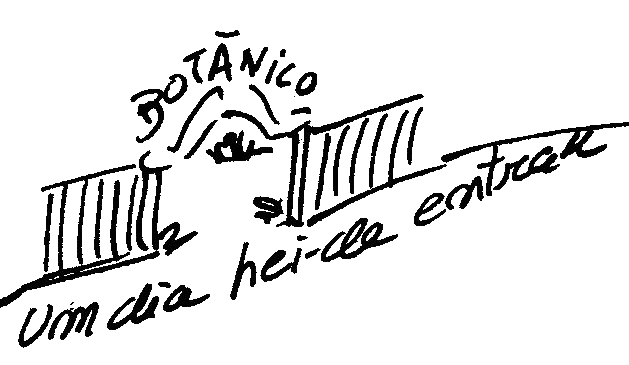 BOTÂNICO
Um dia hei-de entrar